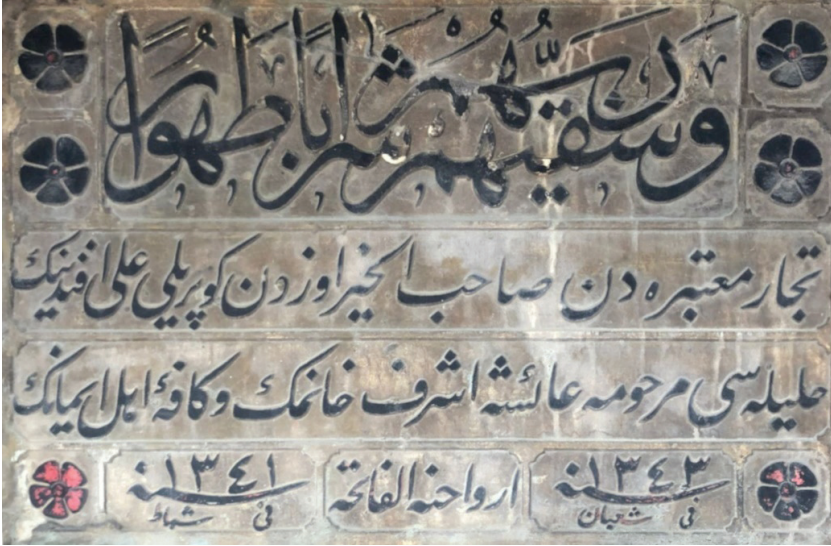 وسقيهم ربهم شرابا طهورا
تجار معتبره دن صاحب الخير اوزردن كوپريلي علی افندينك
حليله سي مرحومه عائشه اشرف خانمك وكافۀ اهل ايمانك
سنه ١٣٤٣ في شعبان ارواحنه الفاتحه سنه ١٣٤١ في شباط